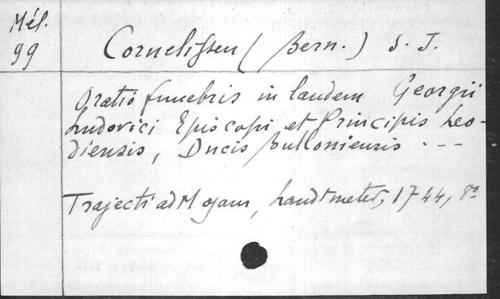 Mél.
99
Cornelissen (Bern.) S. J.
Oratio funebris in laudem Georgii
Ludovici Episcopi et Principis Leo-
diensis, Ducis Bulloniensis - - -
Trajecti ad Mosam, Landtmeter, 1744, 8º